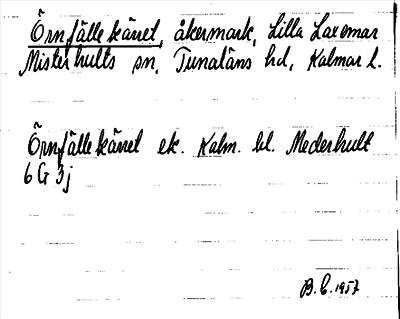 Örnfällekärret, åkermark, Lilla Laxemar
Misterhults sn, Tunaläns hd, Kalmar l.
Örnfällekärret ek. Kalm. bl. Mederhult
6 G 3j
B.C. 1957